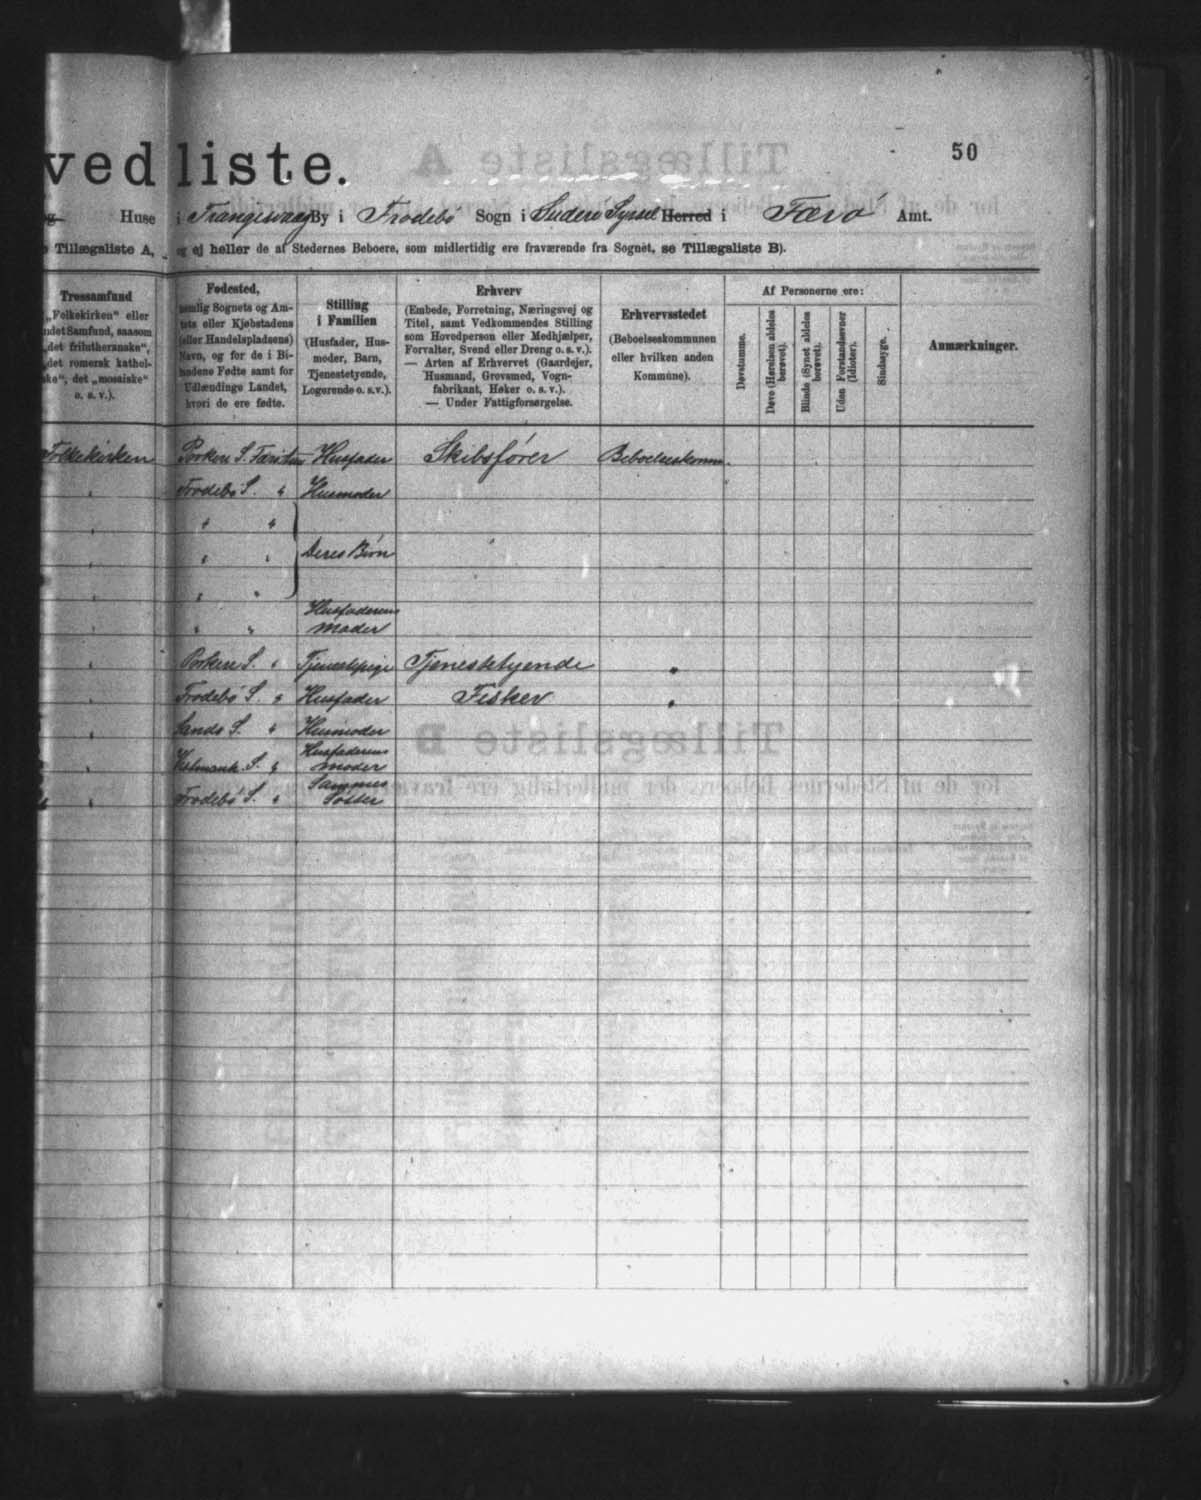 vedliste.
50
Huse i Trangisvaag By i Frodebø Sogn i Suderø Syssel Herred i Færø Amt.
Tillægsliste A, og ej heller de af Stedernes Beboere, som midlertidig ere fraværende fra Sognet, se Tillægsliste B).
Trossamfund
„Folkekirken“ eller
ndet Samfund, saasom
„det frilutheranske“,
„det romersk kathol-
ske“, det „mosaiske“
o. s. v.).
Fødested,
nemlig Sognets og Am-
tets eller Kjøbstadens
(eller Handelspladsens)
Navn, og for de i Bi-
landene Fødte samt for
Udlændinge Landet,
hvori de ere fødte.
Stilling
i Familien
(Husfader, Hus-
moder, Barn,
Tjenestetyende,
Logerende o. s. v.).
Erhverv
(Embede, Forretning, Næringsvej og
Titel, samt Vedkommendes Stilling
som Hovedperson eller Medhjælper,
Forvalter, Svend eller Dreng o. s. v.).
— Arten af Erhvervet (Gaardejer,
Husmand, Grovsmed, Vogn-
fabrikant, Høker o. s. v.).
— Under Fattigforsørgelse.
Erhvervsstedet
(Beboelseskommunen
eller hvilken anden
Kommune).
Af Personerne ere:
Døvstumme.
Døve (Hørelsen aldeles
berøvet).
Blinde (Synet aldeles
berøvet).
Uden Forstandsevner
(Idioter).
Sindssyge.
Anmærkninger.
Folkekirken Porkeri S. Husfader Skibsfører Beboelseskomm.
" Frodebø S. " Husmoder
" " "
" " " Deres Børn
" " "
" " " Husfaderens
Moder
" Porkeri S. " Tjenestepige Tjenestetyende "
" Frodebø S. " Husfader Fisker "
" Sands S. " Husmoder
" S. " Husfaderens
Moder
" Frodebø S. " Sammes
Søster